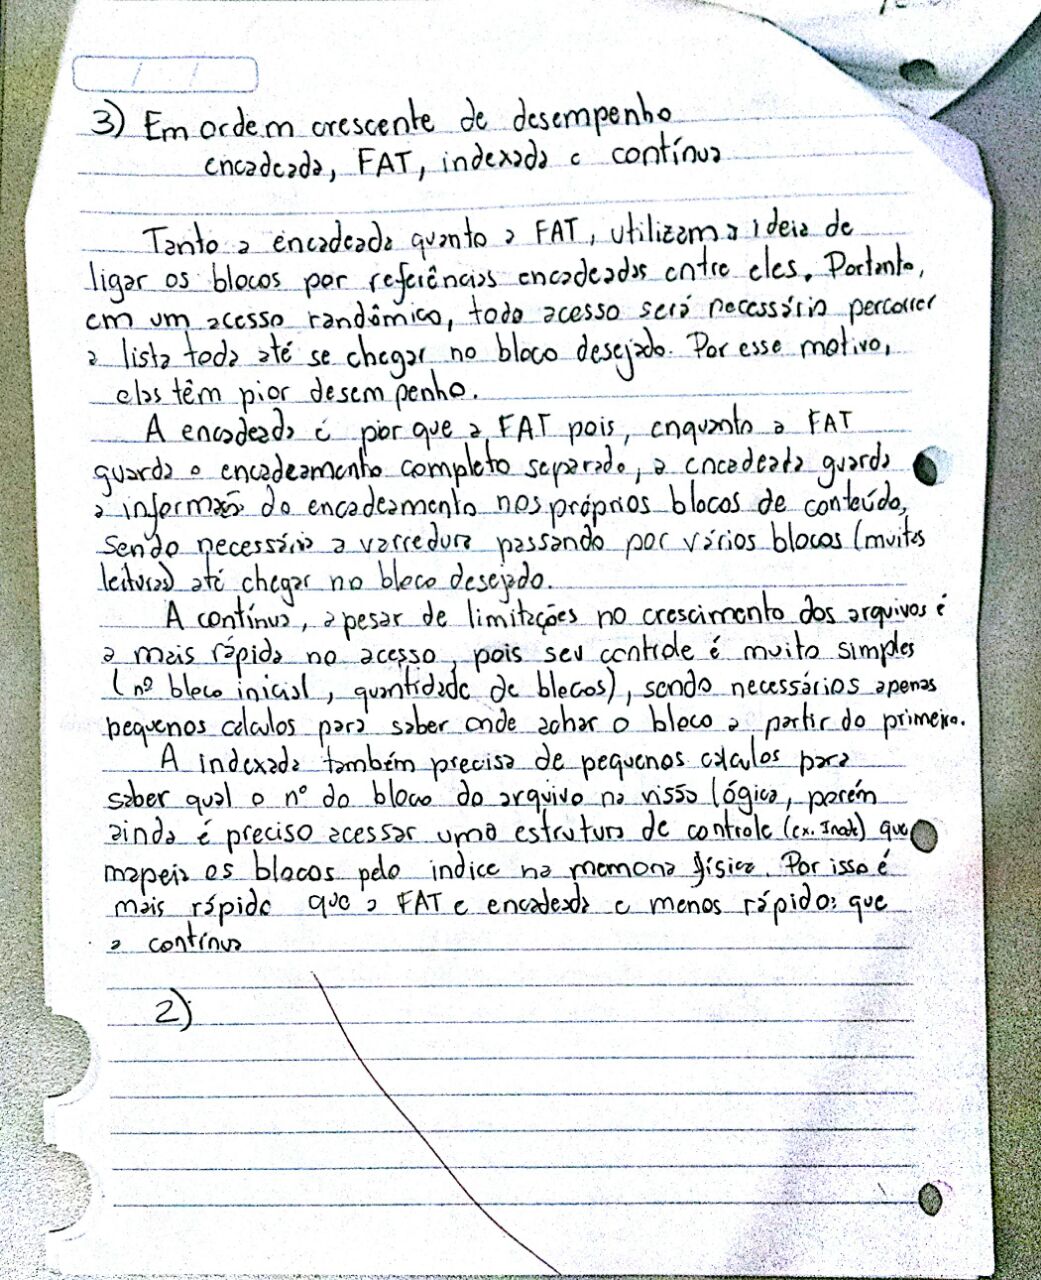 3) Em ordem crescente de desempenho
encadeada, FAT, indexada e contínua
Tanto a encadeada quanto a FAT, utilizam a ideia de
ligar os blocos por referências encadeadas entre eles. Portanto,
em um acesso randômico, todo acesso será necessário percorrer
a lista toda até se chegar no bloco desejado. Por esse motivo,
elas têm pior desempenho.
A encadeada é pior que a FAT pois, enquanto a FAT
guarda o encadeamento completo separado, a encadeada guarda
a informação do encadeamento nos próprios blocos de conteúdo,
sendo necessário a varredura passando por vários blocos (muitas
leituras) até chegar no bloco desejado.
A contínua, apesar de limitações no crescimento dos arquivos é
a mais rápida no acesso, pois seu controle é muito simples
(nº bloco inicial, quantidade de blocos), sendo necessários apenas
pequenos calculos para saber onde achar o bloco a partir do primeiro.
A indexada também precisa de pequenos calculos para
saber qual o nº do bloco do arquivo na visão lógica, porém
ainda é preciso acessar uma estrutura de controle (ex. Inode) que
mapeia os blocos pelo indice na memoria física. Por isso é
mais rápido que a FAT e encadeada e menos rápido que
a contínua
2)